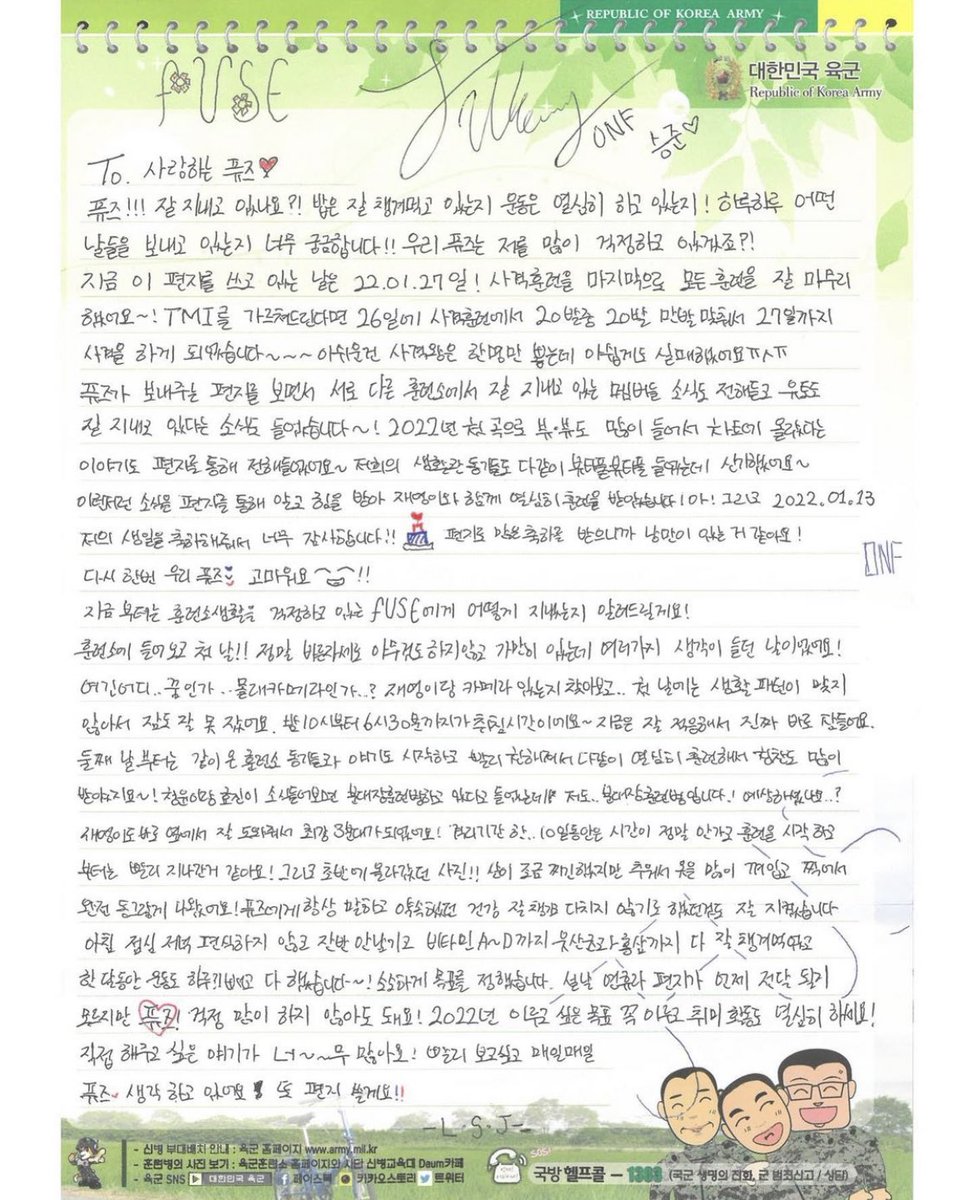 REPUBLIC OF KOREA ARMY
대한민국 육군
Republic of Korea Army
fUSE
ONF
승준♡
To. 사랑하는 퓨즈♥
퓨즈!!! 잘 지내고 있나요?! 밥은 잘 챙겨먹고 있는지 운동은 열심히 하고 있는지! 하루하루 어떤
날들을 보내고 있는지 너무 궁금합니다!! 우리 퓨즈는 저를 많이 걱정하고 있겠죠?!
지금 이 편지를 쓰고 있는 날은 22.01.27일! 사격훈련을 마지막으로 모든 훈련을 잘 마무리
했어요~! TMI를 가르쳐드린다면 26일에 사격훈련에서 20발중 20발 만발 맞춰서 27일까지
사격을 하게 되었습니다~~~ 아쉬운건 사격왕은 한명만 뽑는데 아쉽게도 실패했어요ㅠㅅㅠ
퓨즈가 보내주는 편지를 보면서 서로 다른 훈련소에서 잘 지내고 있는 멤버들 소식도 전해듣고 유토도
잘 지내고 있다는 소식도 들었습니다~! 2022년 첫 곡으로 뷰·뷰도 많이 들어서 차트에 올랐다는
이야기도 편지를 통해 전해들었어요~ 저희의 생활관 동기들도 다같이 뷰티풀뷰티풀 들었는데 신기했어요~
이런저런 소식을 편지를 통해 알고 힘을 받아 재영이와 함께 열심히 훈련을 받았습니다! 아! 그리고 2022.01.13
저의 생일을 축하해줘서 너무 감사합니다!! 편지로 많은 축하를 받으니까 낭만이 있는 거 같아요!
ONF
다시 한번 우리 퓨즈 고마워요 !!
지금 부터는 훈련소생활을 걱정하고 있는 fUSE에게 어떻게 지냈는지 알려드릴게요!
훈련소에 들어오고 첫 날!! 정말 바른자세로 아무것도하지않고 가만히 있는데 여러가지 생각이 들던 날이었어요!
여긴어디..꿈인가..몰래카메라인가..? 재영이랑 카메라 있는지 찾아보고.. 첫 날에는 생활 패턴이 맞지
않아서 잠도 잘 못 잤어요. 밤10시부터 6시30분까지가 취침시간이에요~ 지금은 잘 적응해서 진짜 바로 잠들어요.
둘째 날 부터는 같이 온 훈련소 동기들과 얘기도 시작하고 빨리 친해져서 다같이 열심히 훈련해서 칭찬도 많이
받았지요~! 창윤이랑 효진이 소식들어보면 분대장훈련병하고 있다고 들었는데!! 저도.. 분대장훈련병입니다.! 예상하셨나요..?
재영이도 바로 옆에서 잘 도와줘서 최강 3분대가 되었어요! 격리기간 한..10일동안은 시간이 정말 안가고 훈련을 시작 하고
부터는 빨리 지나간거 같아요! 그리고 초반에 올라갔던 사진!! 살이 조금 찌긴했지만 추워서 옷을 많이 껴입고 찍어서
완전 동그랗게 나왔어요! 퓨즈에게 항상 말하고 약속했던 건강 잘 챙겨 다치지 않기로 했던것도 잘 지켰습니다
아침 점심 저녁 편식하지 않고 잔반 안남기고 비타민A~D까지 유산균과 홍삼까지 다 잘 챙겨먹었고
한 달동안 운동도 하루빼고 다 했습니다~! 소소하게 목표를 정했습니다. 설날 연휴라 편지가 언제 전달 될지
모르지만 퓨즈! 걱정 많이 하지 않아도 돼요! 2022년 이루고 싶은 목표 꼭 이루고 취미 활동도 열심히 하세요!
직접 해주고 싶은 얘기가 너~~무 많아요! 빨리 보고싶고 매일매일
퓨즈 생각 하고 있어요! 또 편지 쓸게요!!
-L.S.J-
- 신병 부대배치 안내 : 육군 홈페이지 www.army.mil.kr
- 훈련병의 사진 보기 : 육군훈련소 홈페이지와 사단 신병교육대 Daum카페
- 육군 SNS 대한민국 육군 페이스북 카카오스토리 트위터
SOS!
국방헬프콜 - 1303 (국군 생명의 전화, 군 범죄신고 / 상담)